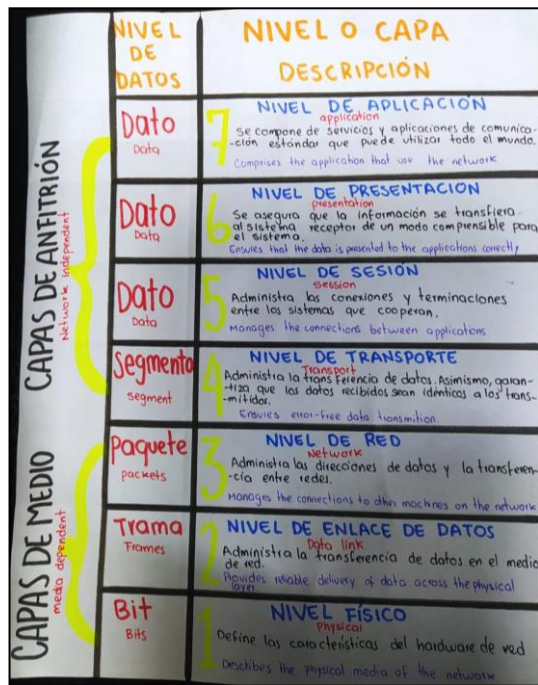 NIVEL
DE
DATOS
NIVEL O CAPA
DESCRIPCIÓN
CAPAS DE ANFITRIÓN
Network independent
Dato
Data
7
NIVEL DE APLICACIÓN
application
Se compone de servicios y aplicaciones de comunica-
-ción estándar que puede utilizar todo el mundo.
Comprises the application that use the network
Dato
Data
6
NIVEL DE PRESENTACIÓN
presentation
Se asegura que la información se transfiera
al sistema receptor de un modo comprensible para
el sistema.
Ensures that the data is presented to the applications correctly
Dato
Data
5
NIVEL DE SESIÓN
session
Administra las conexiones y terminaciones
entre los sistemas que cooperan.
Manages the connections between applications
Segmento
segment
4
NIVEL DE TRANSPORTE
Transport
Administra la transferencia de datos. Asimismo, garan-
-tiza que los datos recibidos sean idénticos a los trans-
-mitidos.
Ensures error-free data transmition
CAPAS DE MEDIO
media dependent
Paquete
packets
3
NIVEL DE RED
Network
Administra las direcciones de datos y la transferen-
-cia entre redes.
Manages the connections to other machines on the network
Trama
Frames
2
NIVEL DE ENLACE DE DATOS
Data link
Administra la transferencia de datos en el medio
de red.
Provides reliable delivery of data across the physical
layer.
Bit
Bits
1
NIVEL FÍSICO
Physical
Define las características del hardware de red
Describes the physical media of the network